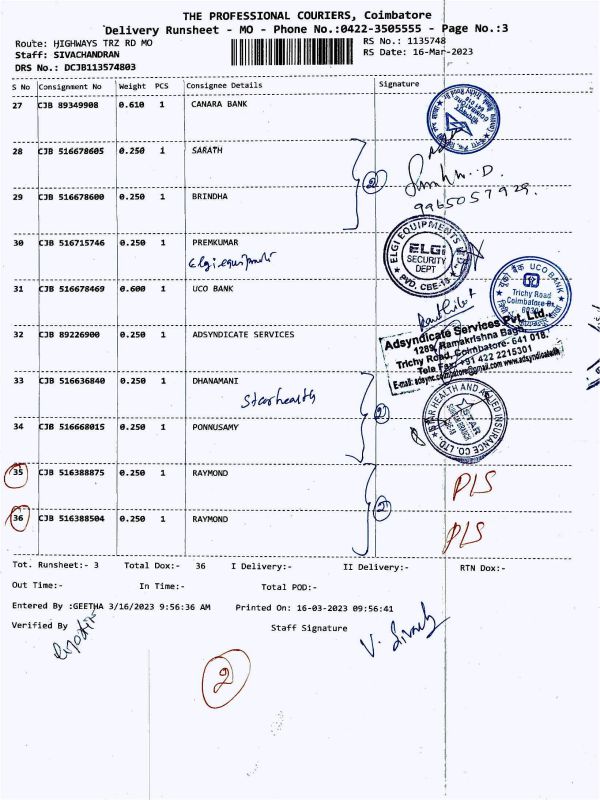 THE PROFESSIONAL COURIERS, Coimbatore
Delivery Runsheet - MO - Phone No.:0422-3505555 - Page No.:3
Route: HIGHWAYS TRZ RD MO
RS No.: 1135748
Staff: SIVACHANDRAN
RS Date: 16-Mar-2023
DRS No.: DCJB113574803
S No Consignment No Weight PCS Consignee Details Signature
27 CJB 89349908 0.610 1 CANARA BANK
28 CJB 516678605 0.250 1 SARATH
2
9965057929.
29 CJB 516678600 0.250 1 BRINDHA
30 CJB 516715746 0.250 1 PREMKUMAR
Elgi equipments
ELGI EQUIPMENTS
ELGI
SECURITY
DEPT
PVD, CBE-15
31 CJB 516678469 0.600 1 UCO BANK
UCO BANK
Trichy Road
Coimbatore Br.
32 CJB 89226900 0.250 1 ADSYNDICATE SERVICES
Adsyndicate Services Pvt. Ltd.,
1289, Ramakrishna Bagh,
Trichy Road, Coimbatore- 641 018.
Tele Fax: +91 422 2215301
33 CJB 516636840 0.250 1 DHANAMANI
Starhealth
2
STAR HEALTH AND ALLIED INSURANCE CO. LTD.
STAR
34 CJB 516668015 0.250 1 PONNUSAMY
35 CJB 516388875 0.250 1 RAYMOND
PLS
2
36 CJB 516388504 0.250 1 RAYMOND
PLS
Tot. Runsheet:- 3 Total Dox:- 36 I Delivery:- II Delivery:- RTN Dox:-
Out Time:- In Time:- Total POD:-
Entered By :GEETHA 3/16/2023 9:56:36 AM Printed On: 16-03-2023 09:56:41
Verified By Staff Signature
2